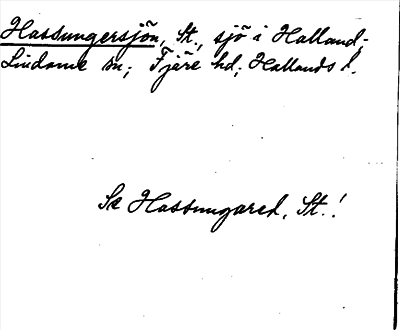 Hassungersjön, St., sjö i Halland;
Lindome sn; Fjäre hd; Hallands l.
Se Hassungared, St.!